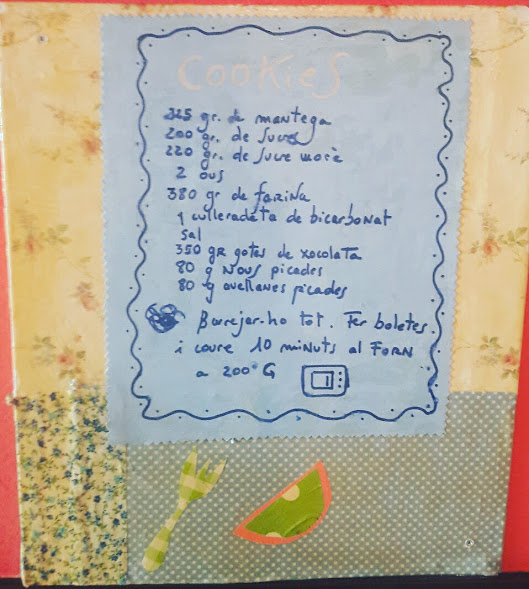 Cookies
325 gr. de mantega
200 gr. de sucre
220 gr. de sucre morè
2 ous
380 gr de farina
1 culleradeta de bicarbonat
sal
350 gr gotes de xocolata
80 g nous picades
80 g avellanes picades
Barrejar-ho tot. Fer boletes.
i coure 10 minuts al FORN
a 200° G